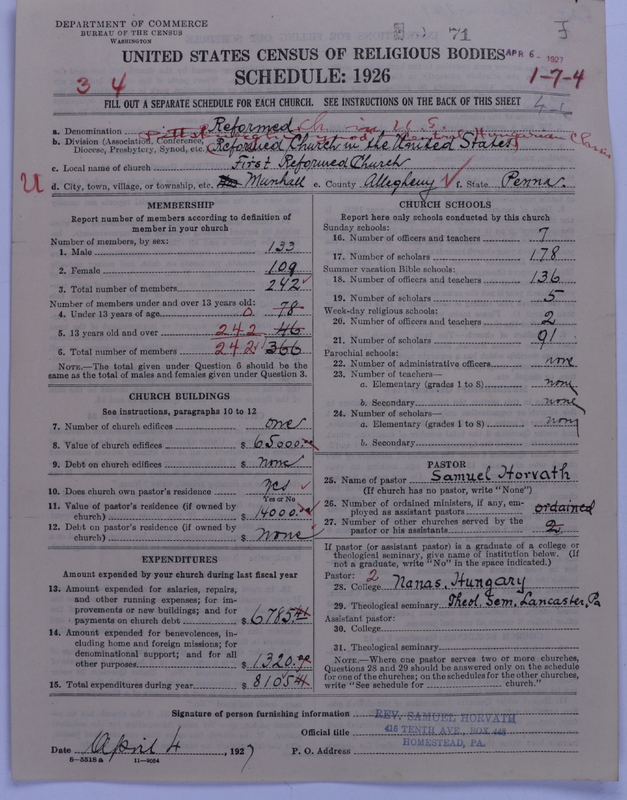 DEPARTMENT OF COMMERCE
BUREAU OF THE CENSUS
WASHINGTON
71
UNITED STATES CENSUS OF RELIGIOUS BODIES
APR 6 - 1927
SCHEDULE: 1926
3 4
1-7-4
FILL OUT A SEPARATE SCHEDULE FOR EACH CHURCH. SEE INSTRUCTIONS ON THE BACK OF THIS SHEET
a. Denomination Reformed Ch. in U. S.
b. Division (Association, Conference, Diocese, Presbytery, Synod, etc. Reformed Church in the United States
Central Hungarian Classis
c. Local name of church First Reformed Church
U
d. City, town, village, or township, etc. Munhall e. County Allegheny f. State Penna.
MEMBERSHIP
Report number of members according to definition of
member in your church
Number of members, by sex:
1. Male 133
2. Female 109
3. Total number of members 242
Number of members under and over 13 years old:
4. Under 13 years of age 0 78
5. 13 years old and over 242 46
6. Total number of members 242 366
NOTE.—The total given under Question 6 should be the
same as the total of males and females given under Question 3.
CHURCH BUILDINGS
See instructions, paragraphs 10 to 12
7. Number of church edifices one
8. Value of church edifices $ 65000
9. Debt on church edifices $ none
10. Does church own pastor's residence yes
Yes or No
11. Value of pastor's residence (if owned by
church) $ 14000
12. Debt on pastor's residence (if owned by
church) $ None
EXPENDITURES
Amount expended by your church during last fiscal year
13. Amount expended for salaries, repairs,
and other running expenses; for im-
provements or new buildings; and for
payments on church debt $ 6785
14. Amount expended for benevolences, in-
cluding home and foreign missions; for
denominational support; and for all
other purposes $ 1320
15. Total expenditures during year $ 8105
CHURCH SCHOOLS
Report here only schools conducted by this church
Sunday schools:
16. Number of officers and teachers 7
17. Number of scholars 178
Summer vacation Bible schools:
18. Number of officers and teachers 136
19. Number of scholars 5
Week-day religious schools:
20. Number of officers and teachers 2
21. Number of scholars 91
Parochial schools:
22. Number of administrative officers none
23. Number of teachers—
a. Elementary (grades 1 to 8) none
b. Secondary none
24. Number of scholars—
a. Elementary (grades 1 to 8) none
b. Secondary
PASTOR
25. Name of pastor Samuel Horvath
(If church has no pastor, write "None")
26. Number of ordained ministers, if any, em-
ployed as assistant pastors ordained
27. Number of other churches served by the
pastor or his assistants 2
If pastor (or assistant pastor) is a graduate of a college or
theological seminary, give name of institution below. (If
not a graduate, write "No" in the space indicated.)
Pastor: 2
28. College Nanas, Hungary
29. Theological seminary Theol. Sem. Lancaster, Pa
Assistant pastor:
30. College
31. Theological seminary
NOTE.—Where one pastor serves two or more churches,
Questions 28 and 29 should be answered only on the schedule
for one of the churches; on the schedules for the other churches,
write "See schedule for church."
Signature of person furnishing information REV. SAMUEL HORVATH
Official title 416 TENTH AVE., BOX 448
Date April 4, 1927 P. O. Address HOMESTEAD, PA.
8—5518 a 11—9024